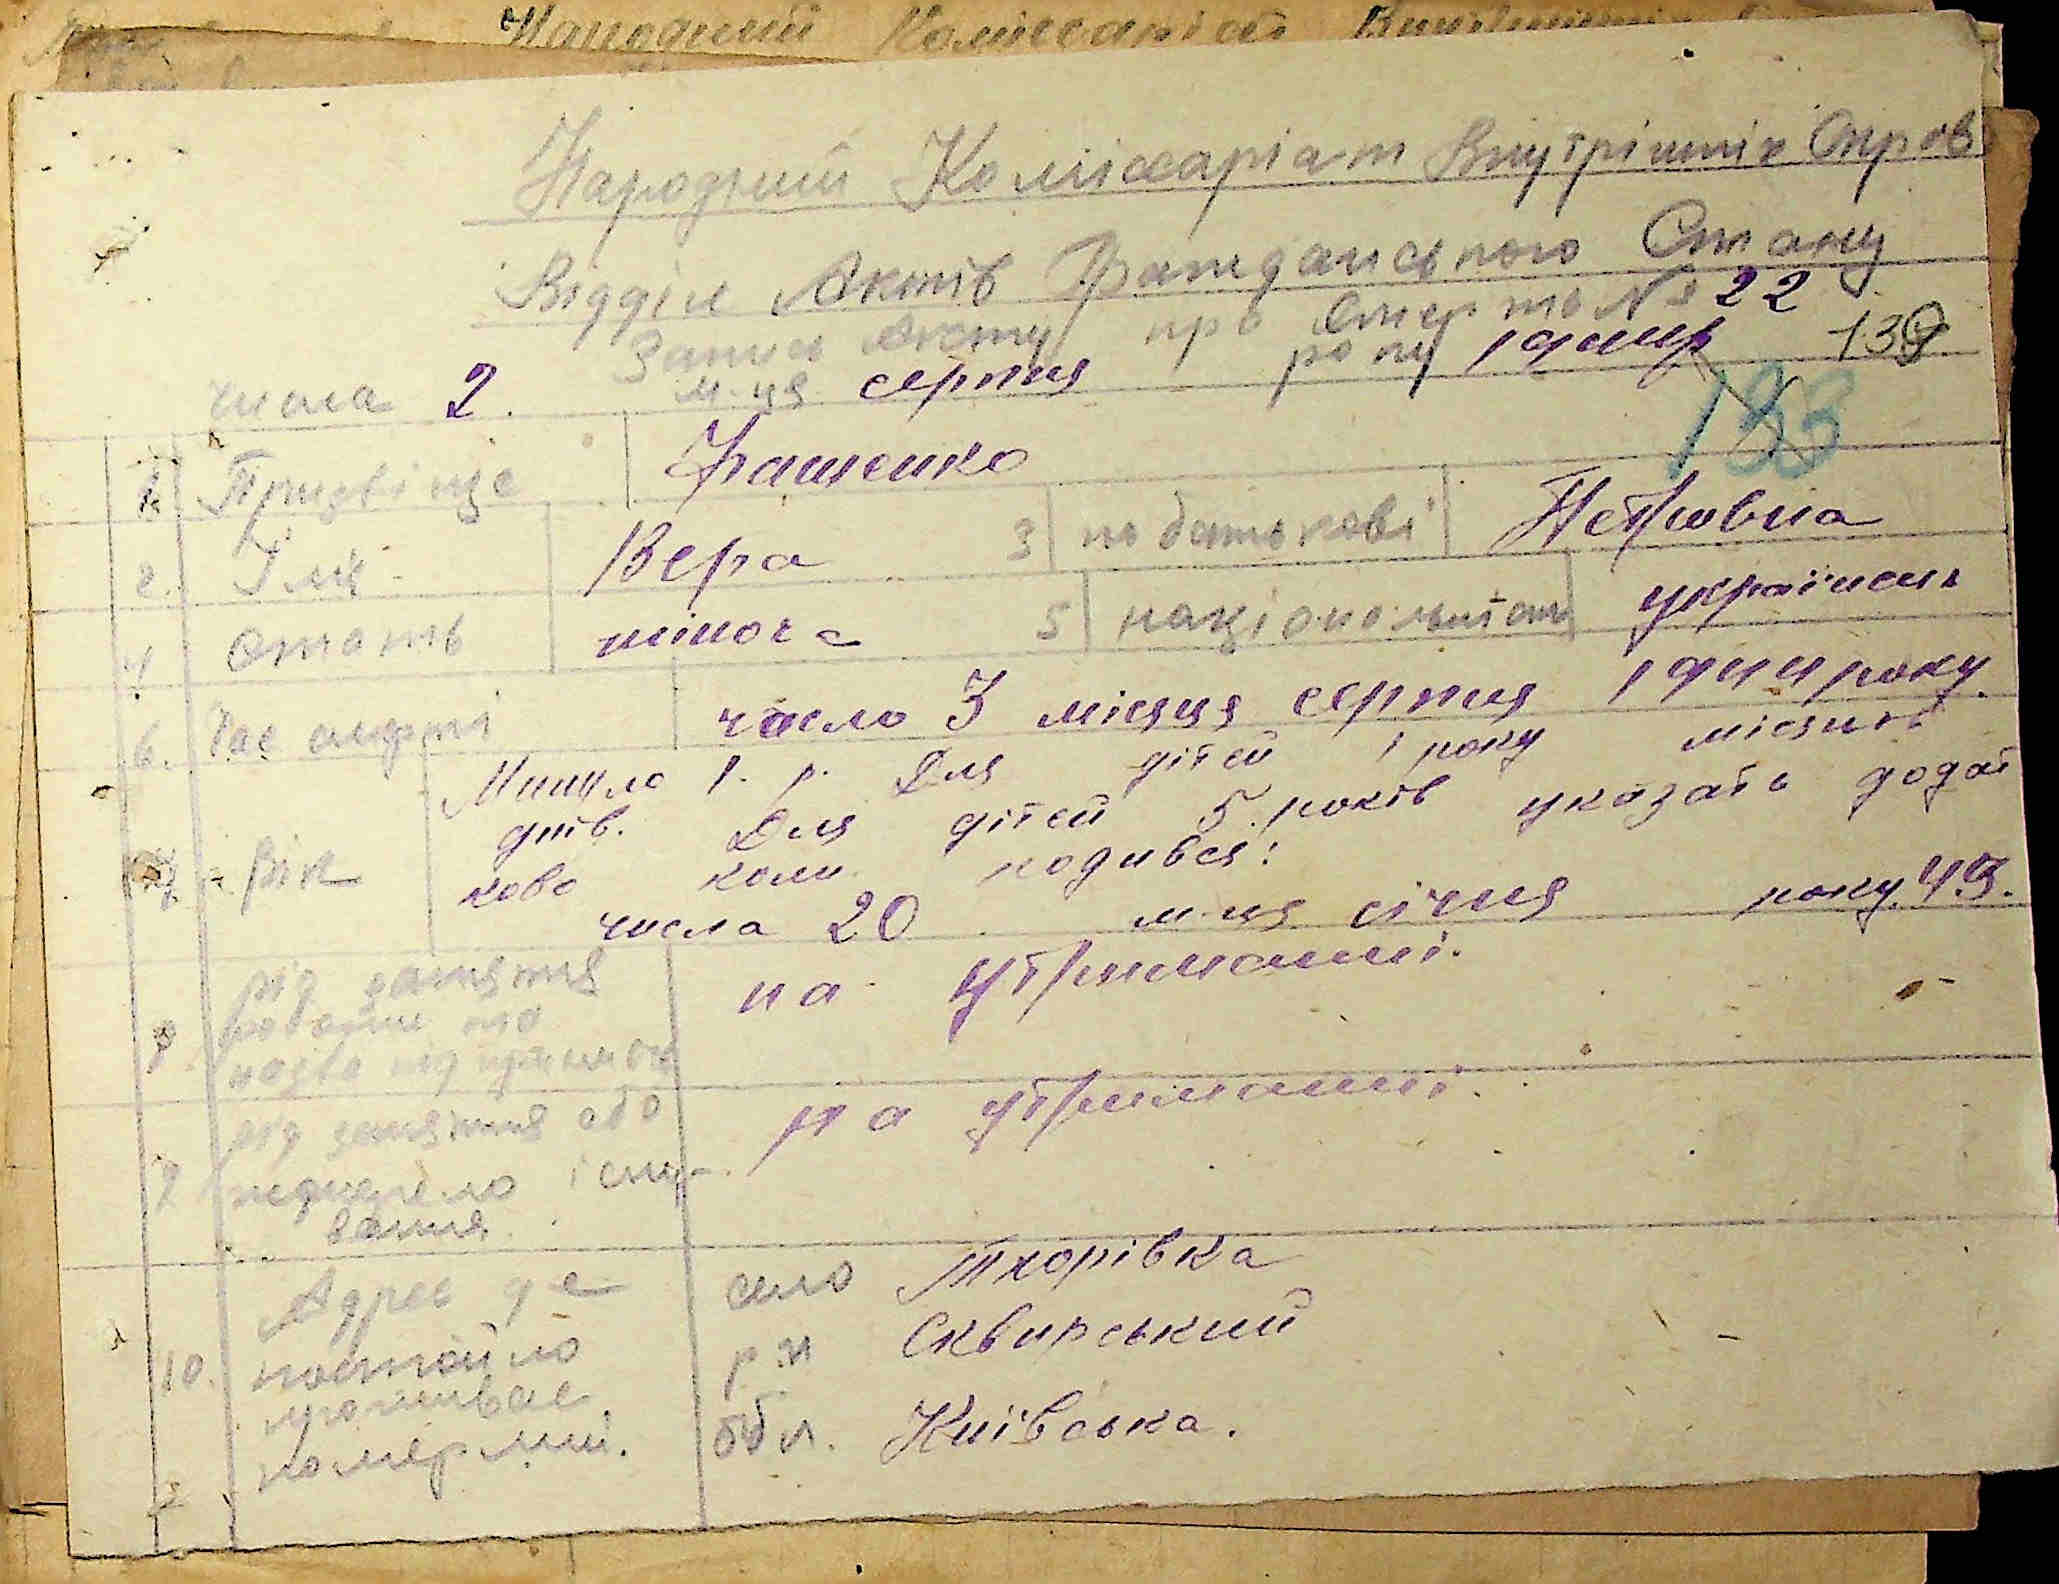 Народний Коміссаріат
Народний Коміссаріат Внутрішніх Справ
Відділ Актів Гражданського Стану
Запис Акту про смерть № 22
числа 2. м-ця серпня року 1944р 139
133
1. Призвіще
2. Імя Вера 3 по батькові Петровна
4 стать жіноча 5 національність українськ
6. Час смерті число 3 місяця серпня 1944 року.
Минуло 1. р. Для дітей 1 року місяців
днів. Для дітей 5 років указать додат
7. вік ково коли родився:
числа 20 м-ця січня року 43.
8. рід заняття на утриманні.
роботи та
назва підприємства
9 рід заняття або на утриманні.
жджерело існу-
вання
Адрес де село Тхорівка
10. постойно р-н Сквирський
проживає
померлий. обл. Київська.